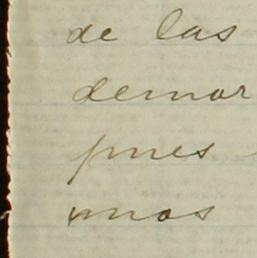 de las
demor
pues
unos